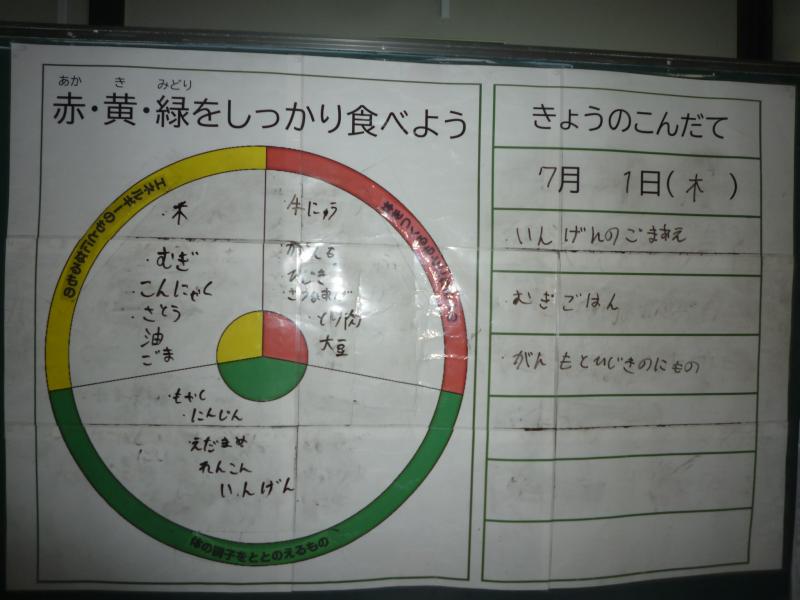 あか き みどり
赤・黄・緑をしっかり食べよう
エネルギーのもとになるもの
・米
・むぎ
・こんにゃく
・さとう
油
ごま
・牛にゅう
・がんも
・ひじき
・とり肉
大豆
・もやし
・にんじん
えだまめ
れんこん
いんげん
体の調子をととのえるもの
きょうのこんだて
7月 1日(木)
いんげんのごまあえ
むぎごはん
がんもとひじきのにもの